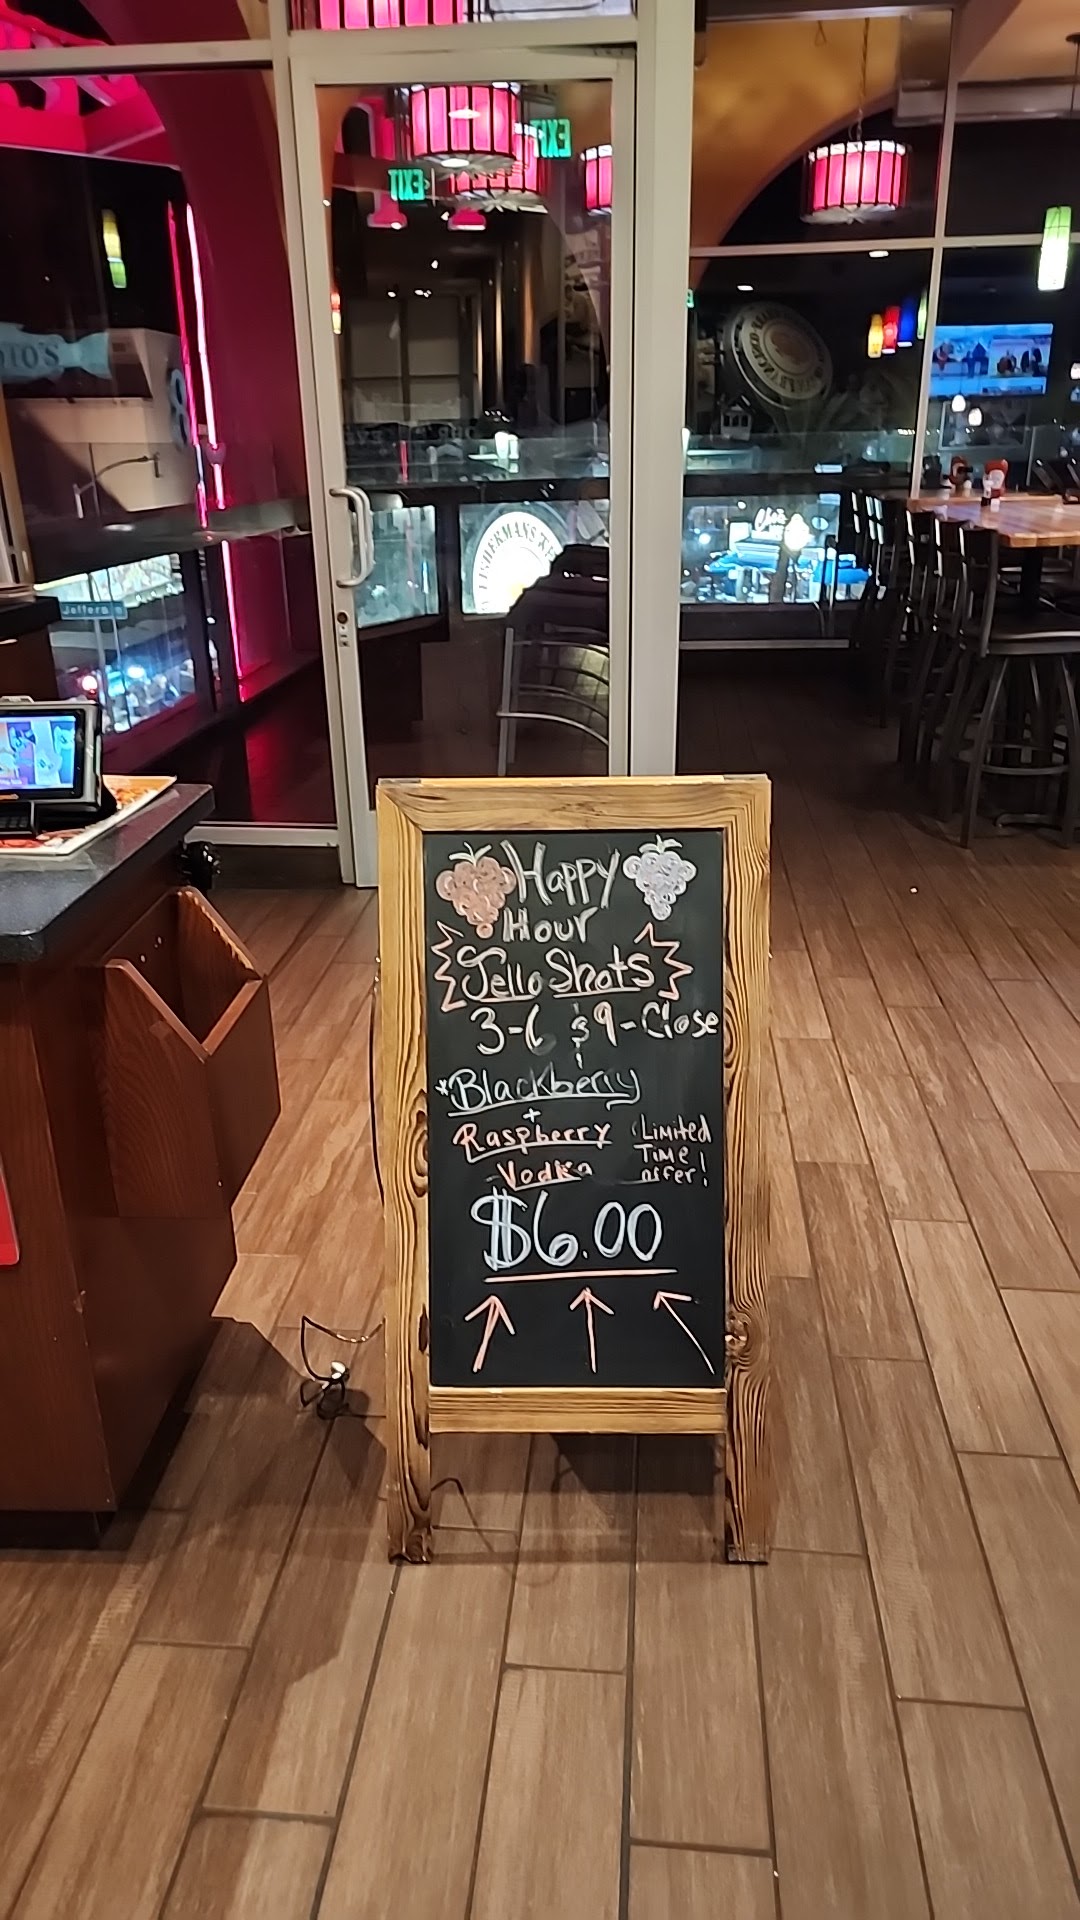 EXIT
EXIT
OTO'S
8
FISHERMANS
Jefferson
Happy
Hour
Jello Shots
3-6 & 9-Close
*Blackberry
+
Raspberry
Vodka
Limited
Time
offer!
$6.00